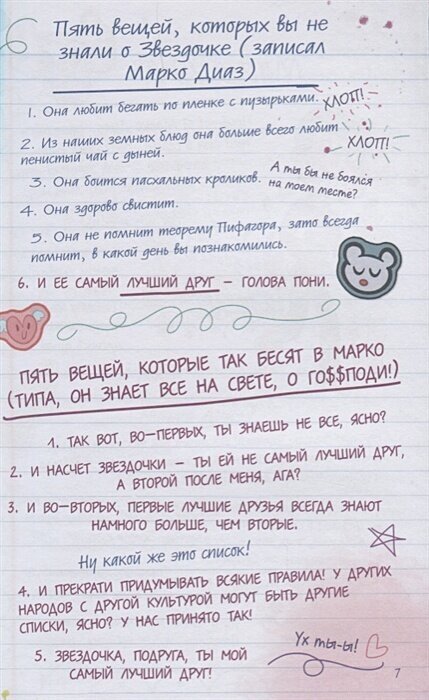 Пять вещей, которых вы не
знали о Звездочке (записал
Марко Диаз)
1. Она любит бегать по пленке с пузырьками.
ХЛОП!
2. Из наших земных блюд она больше всего любит
пенистый чай с дыней.
ХЛОП!
3. Она боится пасхальных кроликов.
А ты бы не боялся
на моем месте?
4. Она здорово свистит.
5. Она не помнит теорему Пифагора, зато всегда
помнит, в какой день вы познакомились.
6. И ЕЕ САМЫЙ ЛУЧШИЙ ДРУГ – ГОЛОВА ПОНИ.
ПЯТЬ ВЕЩЕЙ, КОТОРЫЕ ТАК БЕСЯТ В МАРКО
(ТИПА, ОН ЗНАЕТ ВСЕ НА СВЕТЕ, О ГО$$ПОДИ!)
1. ТАК ВОТ, ВО-ПЕРВЫХ, ТЫ ЗНАЕШЬ НЕ ВСЕ, ЯСНО?
2. И НАСЧЕТ ЗВЕЗДОЧКИ – ТЫ ЕЙ НЕ САМЫЙ ЛУЧШИЙ ДРУГ,
А ВТОРОЙ ПОСЛЕ МЕНЯ, АГА?
3. И ВО-ВТОРЫХ, ПЕРВЫЕ ЛУЧШИЕ ДРУЗЬЯ ВСЕГДА ЗНАЮТ
НАМНОГО БОЛЬШЕ, ЧЕМ ВТОРЫЕ.
Ну какой же это список!
4. И ПРЕКРАТИ ПРИДУМЫВАТЬ ВСЯКИЕ ПРАВИЛА! У ДРУГИХ
НАРОДОВ С ДРУГОЙ КУЛЬТУРОЙ МОГУТ БЫТЬ ДРУГИЕ
СПИСКИ, ЯСНО? У НАС ПРИНЯТО ТАК!
Ух ты-ы!
5. ЗВЕЗДОЧКА, ПОДРУГА, ТЫ МОЙ
САМЫЙ ЛУЧШИЙ ДРУГ!
7